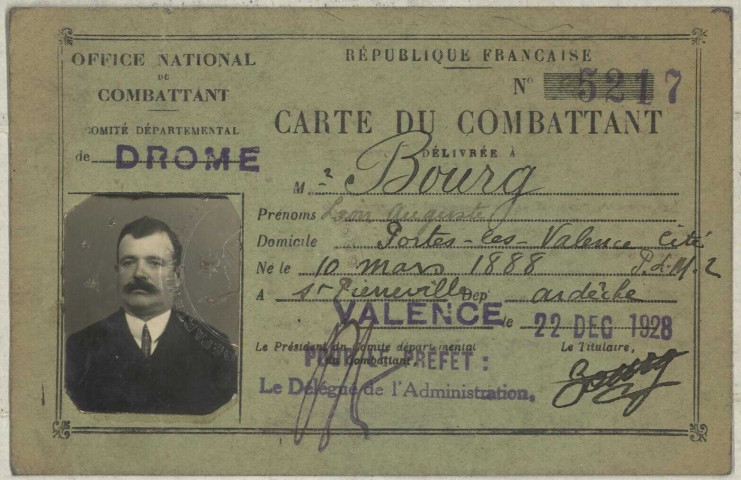 OFFICE NATIONAL
DU
COMBATTANT
COMITÉ DÉPARTEMENTAL
de DROME
RÉPUBLIQUE FRANÇAISE
N° 5217
CARTE DU COMBATTANT
DÉLIVRÉE A
M r Bourg
Prénoms Léon Auguste
Domicile Portes-les-Valence Cité
P.L.M. 2
Né le 10 mars 1888
A St Pierreville Dépt ardèche
VALENCE le 22 DEC 1928
Le Président du Comité départemental
du Combattant,
POUR LE PREFET :
Le Délégué de l'Administration,
Le Titulaire,
Bourg